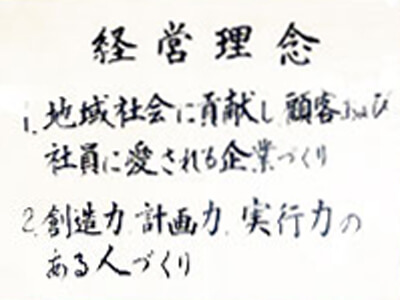 経営理念
1. 地域社会に貢献し 顧客および
社員に愛される企業づくり
2. 創造力. 計画力. 実行力の
ある人づくり